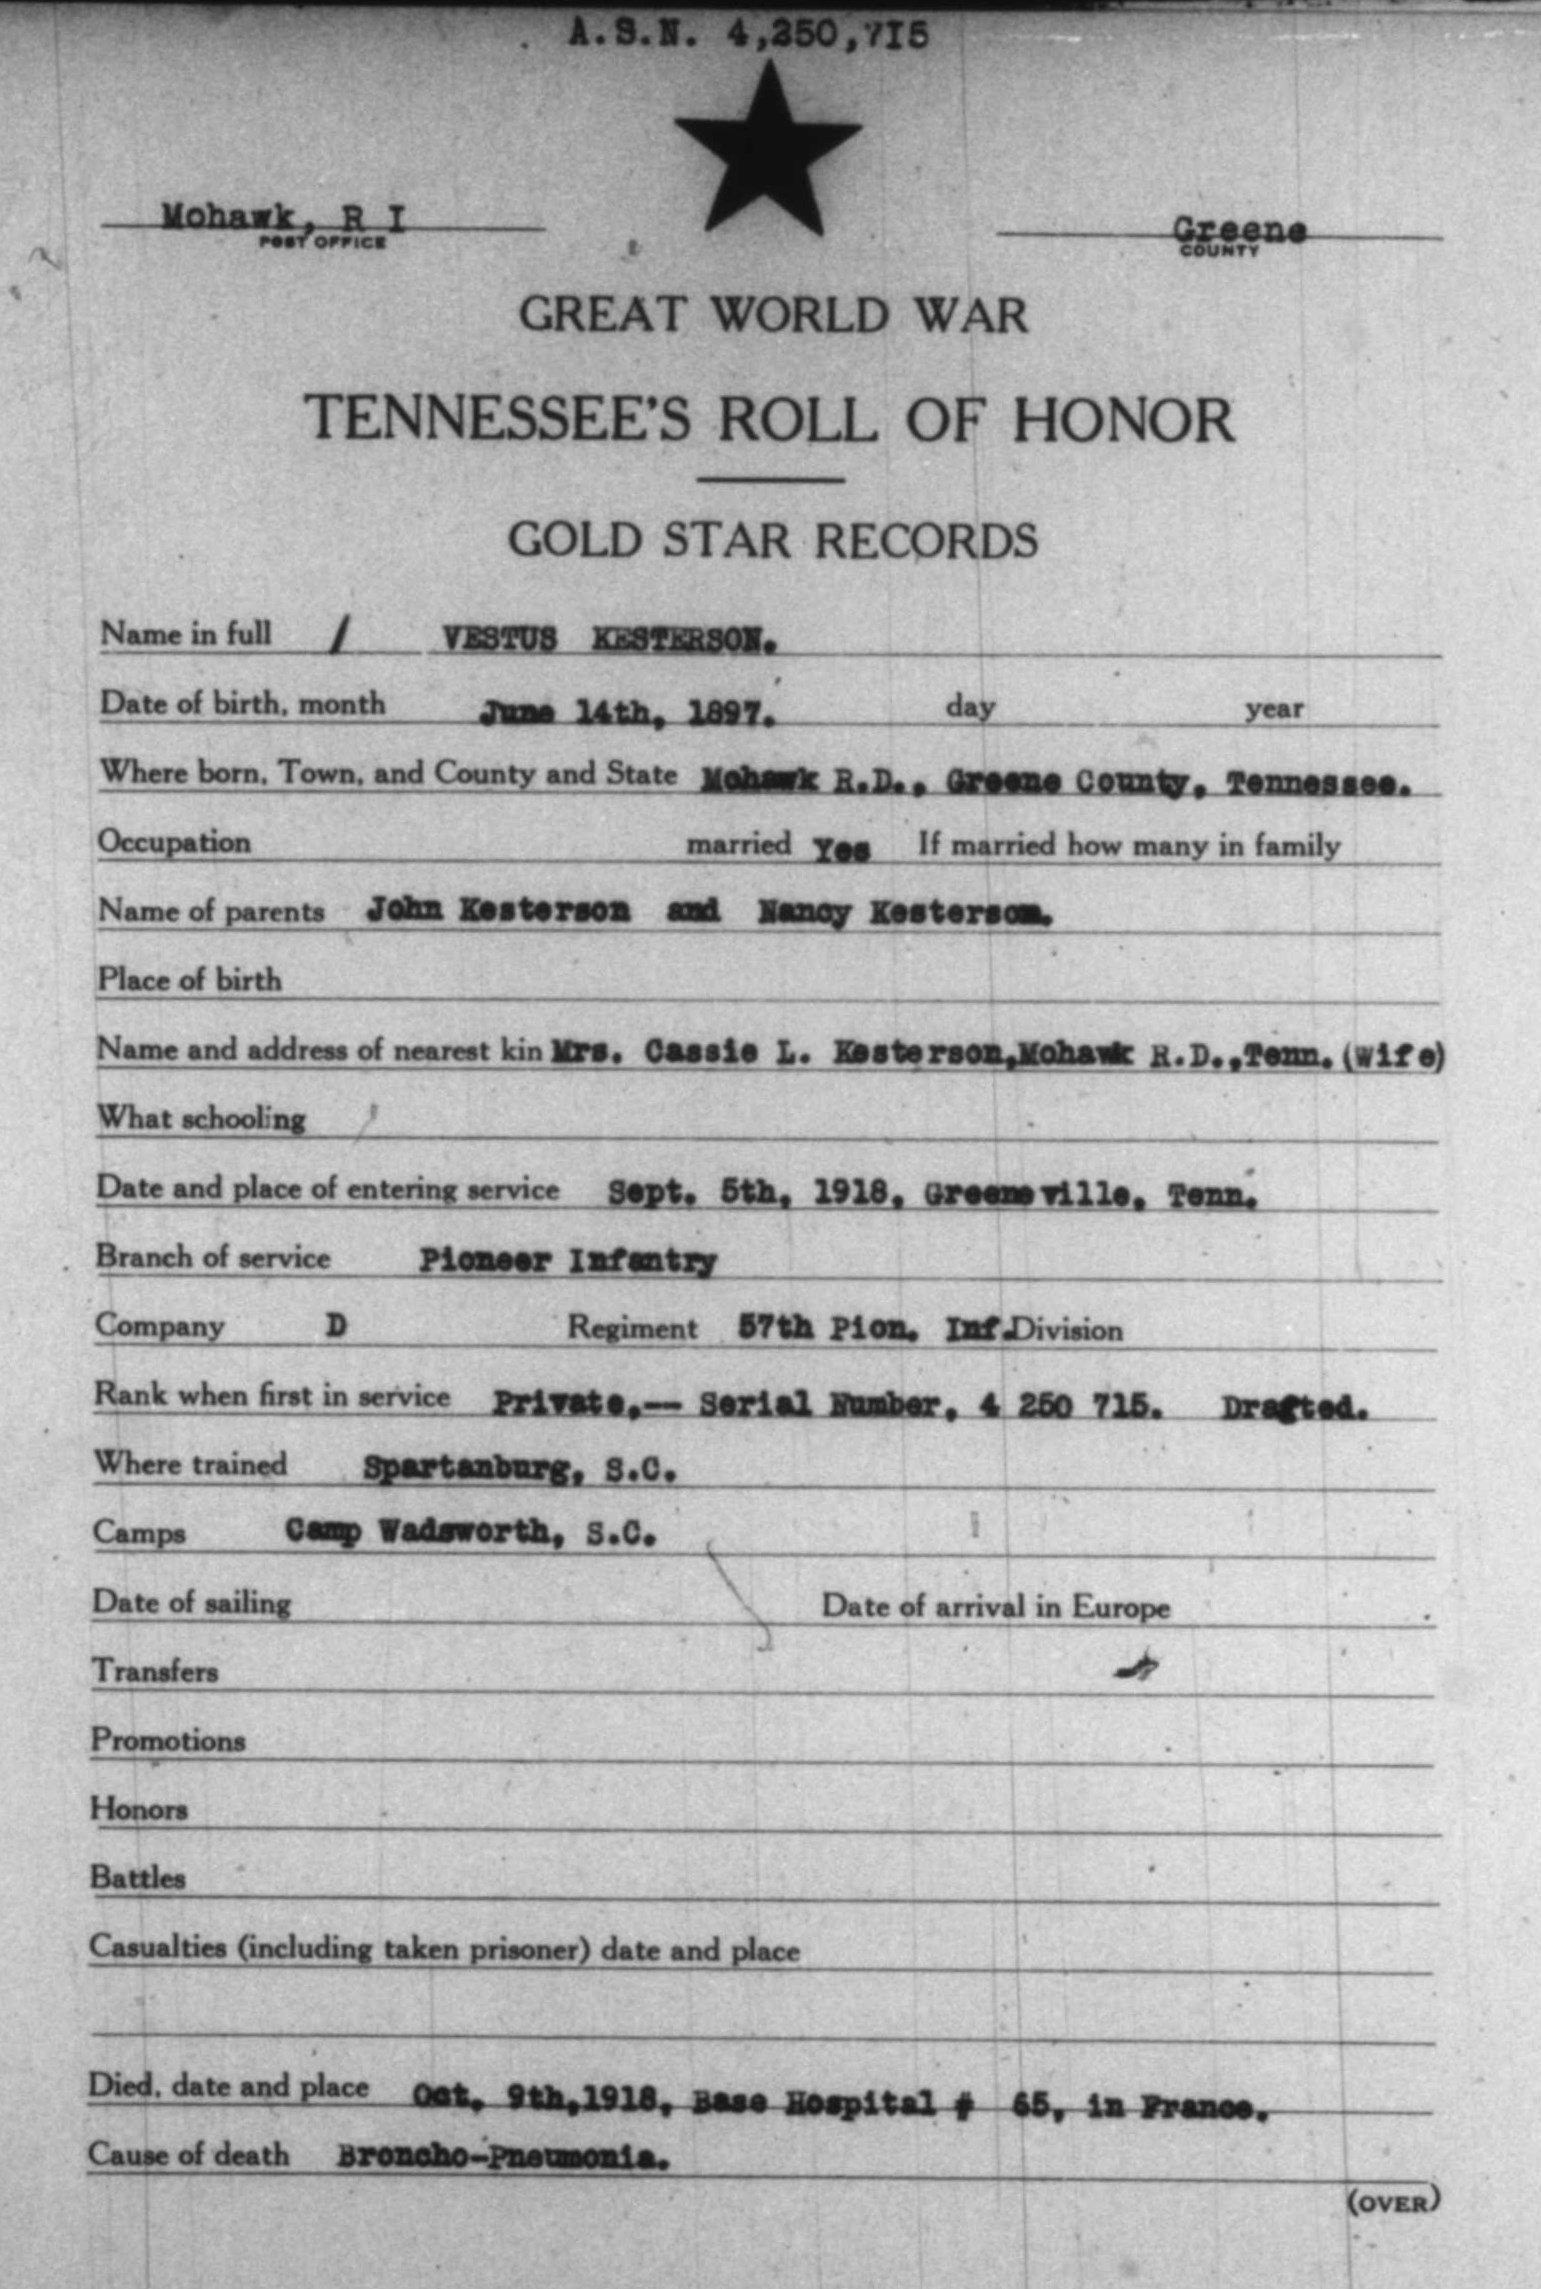 A.S.N. 4,250,7I5
Mohawk, R I
POST OFFICE
Greene
COUNTY
GREAT WORLD WAR
TENNESSEE'S ROLL OF HONOR
GOLD STAR RECORDS
Name in full / VESTUS KESTERSON.
Date of birth, month June 14th, 1897. day year
Where born, Town, and County and State Mohawk R.D., Greene County, Tennessee.
Occupation married Yes If married how many in family
Name of parents John Kesterson and Nancy Kesterson.
Place of birth
Name and address of nearest kin Mrs. Cassie L. Kesterson,Mohawk R.D.,Tenn.(Wife)
What schooling
Date and place of entering service Sept. 5th, 1918, Greeneville, Tenn.
Branch of service Pioneer Infantry
Company D Regiment 57th Pion. Inf. Division
Rank when first in service Private,-- Serial Number, 4 250 715. Drafted.
Where trained Spartanburg, S.C.
Camps Camp Wadsworth, S.C.
Date of sailing Date of arrival in Europe
Transfers
Promotions
Honors
Battles
Casualties (including taken prisoner) date and place
Died, date and place Oct. 9th,1918, Base Hospital # 65, in France.
Cause of death Broncho-Pneumonia.
(OVER)